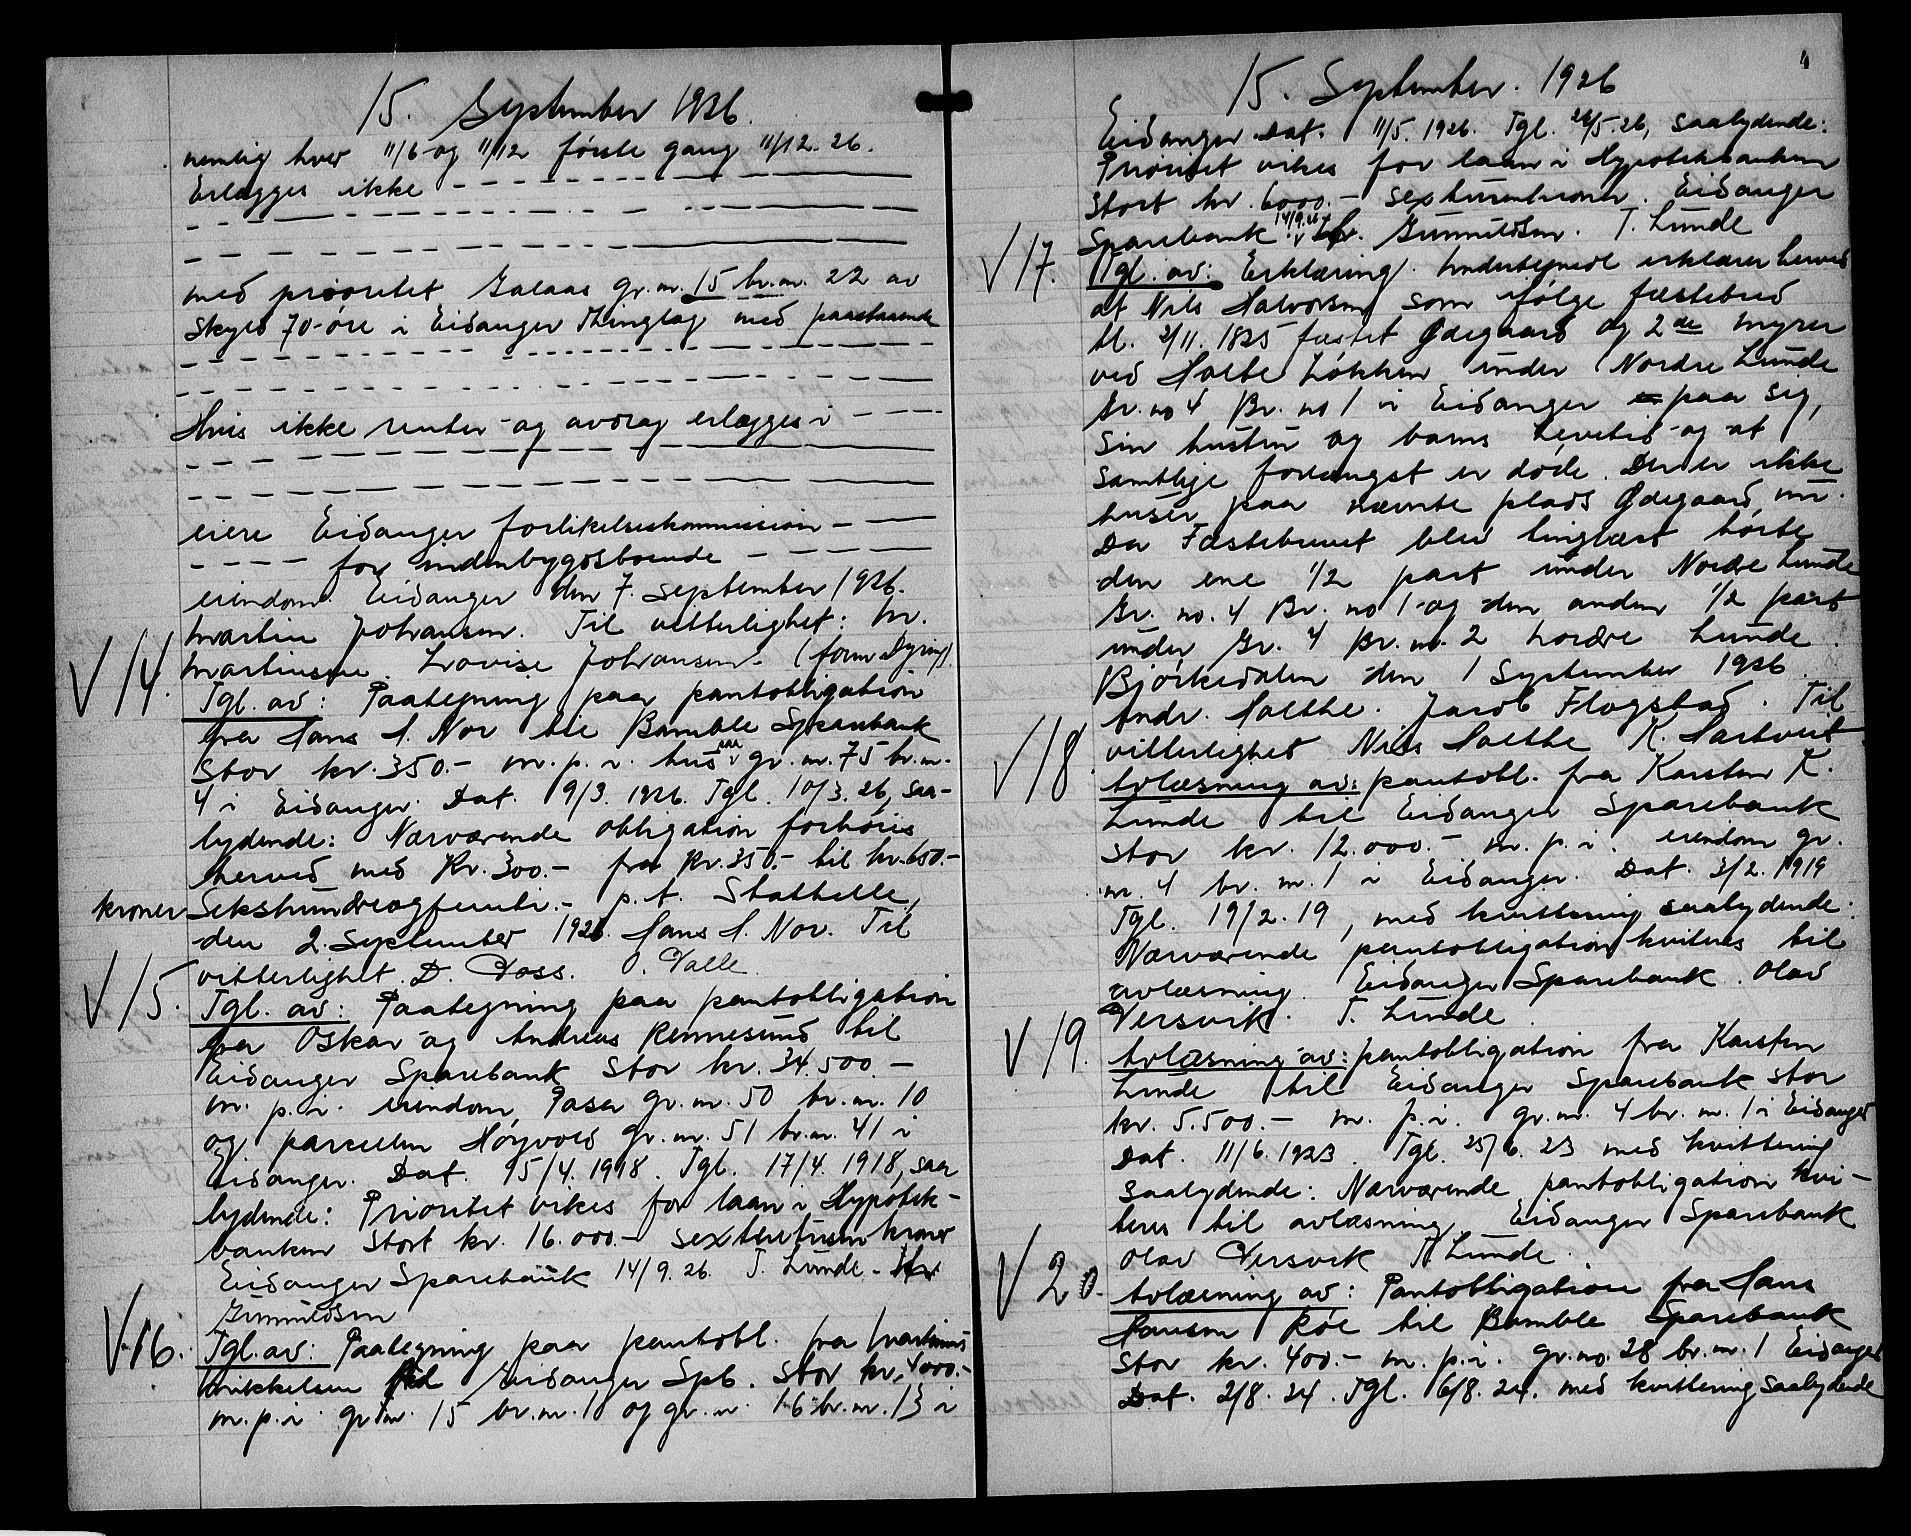 15. September 1926.
nemlig hver 11/6 og 11/12 første gang 11/12. 26.
Erlægges ikke
med prioritet Galaas gr. nr. 15 br. nr. 22 av
skyld 70 øre i Eidanger Thinglag med paastaaende
Hvis ikke renter og avdrag erlægges i
eiere Eidanger forlikelseskommission
for indenbygdsboende
eiendom. Eidanger den 7. september 1926.
Martin Johansen. Til vitterlighet: M.
Martinsen. Lovise Johansen. (form Dyring)
V 14. Tgl. av: Paategning paa pantobligation
fra Hans A. Nor til Bamble Sparebank
stor kr. 350.- m. p. i. hus paa gr. nr. 75 br. nr.
4 i Eidanger. Dat. 9/3. 1926. Tgl. 10/3. 26, saa-
lydende: Nærværende obligation forhøies
herved med Kr. 300.- fra kr. 350.- til kr. 650.-
kroner Sekshundreogfemti.- p. t. Stathelle,
den 2. september 1926. Hans A. Nor. Til
vitterlighet. D. Doss. O. Valle.
V 15. Tgl. av: Paategning paa pantobligation
fra Oskar og Andreas Rennesund til
Eidanger Sparebank stor kr. 34.500.-
m. p. i. eiendom Paser gr. nr. 50 br. nr. 10
og parcellen Høyvold gr. nr. 51 br. nr. 41 i
Eidanger. Dat. 15/4. 1918. Tgl. 17/4. 1918, saa
lydende: Prioritet vikes for laan i Hypotek-
banken stort kr. 16.000.- sextentusen kroner
Eidanger Sparebank 14/9. 26. T. Lunde. Hr.
Gunnuldsen
V 16. Tgl. av: Paategning paa pantobl. fra Martinus
Mikkelsen til Eidanger Spb. stor kr. 4000.-
m. p. i. gr. nr. 15 br. nr. 1 og gr. nr. 16 br. nr. 13 i
15. September. 1926
Eidanger Dat. 11/5. 1926. Tgl. 26/5. 26, saalydende:
Prioritet vikes for laan i Hypotekbanken
stort kr. 6000.- sextusenkroner. Eidanger
Sparebank 14/9. 26 Hr. Gunnuldsen. T. Lunde
V 17. Tgl. av: Erklæring. Undertegnede erklærer herved
at Nils Halvorsen som ifølge fæstebrev
tl. 2/11. 1825 fæstet Ødegaard og 2de myrer
ved Holte Løkken under Nordre Lunde
Gr. no 4 Br. no 1 i Eidanger paa sig,
sin hustru og barns Levetid og at
samtlige forlængst er døde. Der er ikke
huser paa nævnte plads Ødegaard nu.
Da Fæstebrevet blev tinglæst hørte
den ene 1/2 part under Nordre Lunde
Gr. no. 4 Br. no 1 og den anden 1/2 part
under Gr. 4 Br. no. 2 nordre Lunde.
Bjørkedalen den 1 September 1926.
Andr. Holthe. Jacob Flogstad. Til
vitterlighet Nils Holthe K. Hartveit
V 18. Avlæsning av: pantobl. fra Karsten K.
Lunde til Eidanger Sparebank
stor kr. 12.000.- m. p. i. eiendom gr.
nr. 4 br. nr. 1 i Eidanger. Dat. 3/2. 1919
Tgl. 19/2. 19, med kvittering saalydende:
Nærværende pantobligation kviteres til
avlæsning. Eidanger Sparebank. Olav
Versvik. T. Lunde.
V 19. Avlæsning av: pantobligation fra Karsten
Lunde til Eidanger Sparebank stor
kr. 5.500.- m. p. i. gr. nr. 4 br. nr. 1 i Eidanger
Dat. 11/6. 1923. Tgl. 25/6. 23 med kvittering
saalydende: Nærværende pantobligation kvi-
teres til avlæsning. Eidanger Sparebank
Olav Versvik T. Lunde.
V 20. Avlæsning av: Pantobligation fra Hans
Hansen Røe til Bamble Sparebank
stor kr. 400.- m. p. i. gr. no. 28 br. nr. 1 Eidanger
Dat. 2/8. 24. Tgl. 6/8. 24. med kvittering saalydende